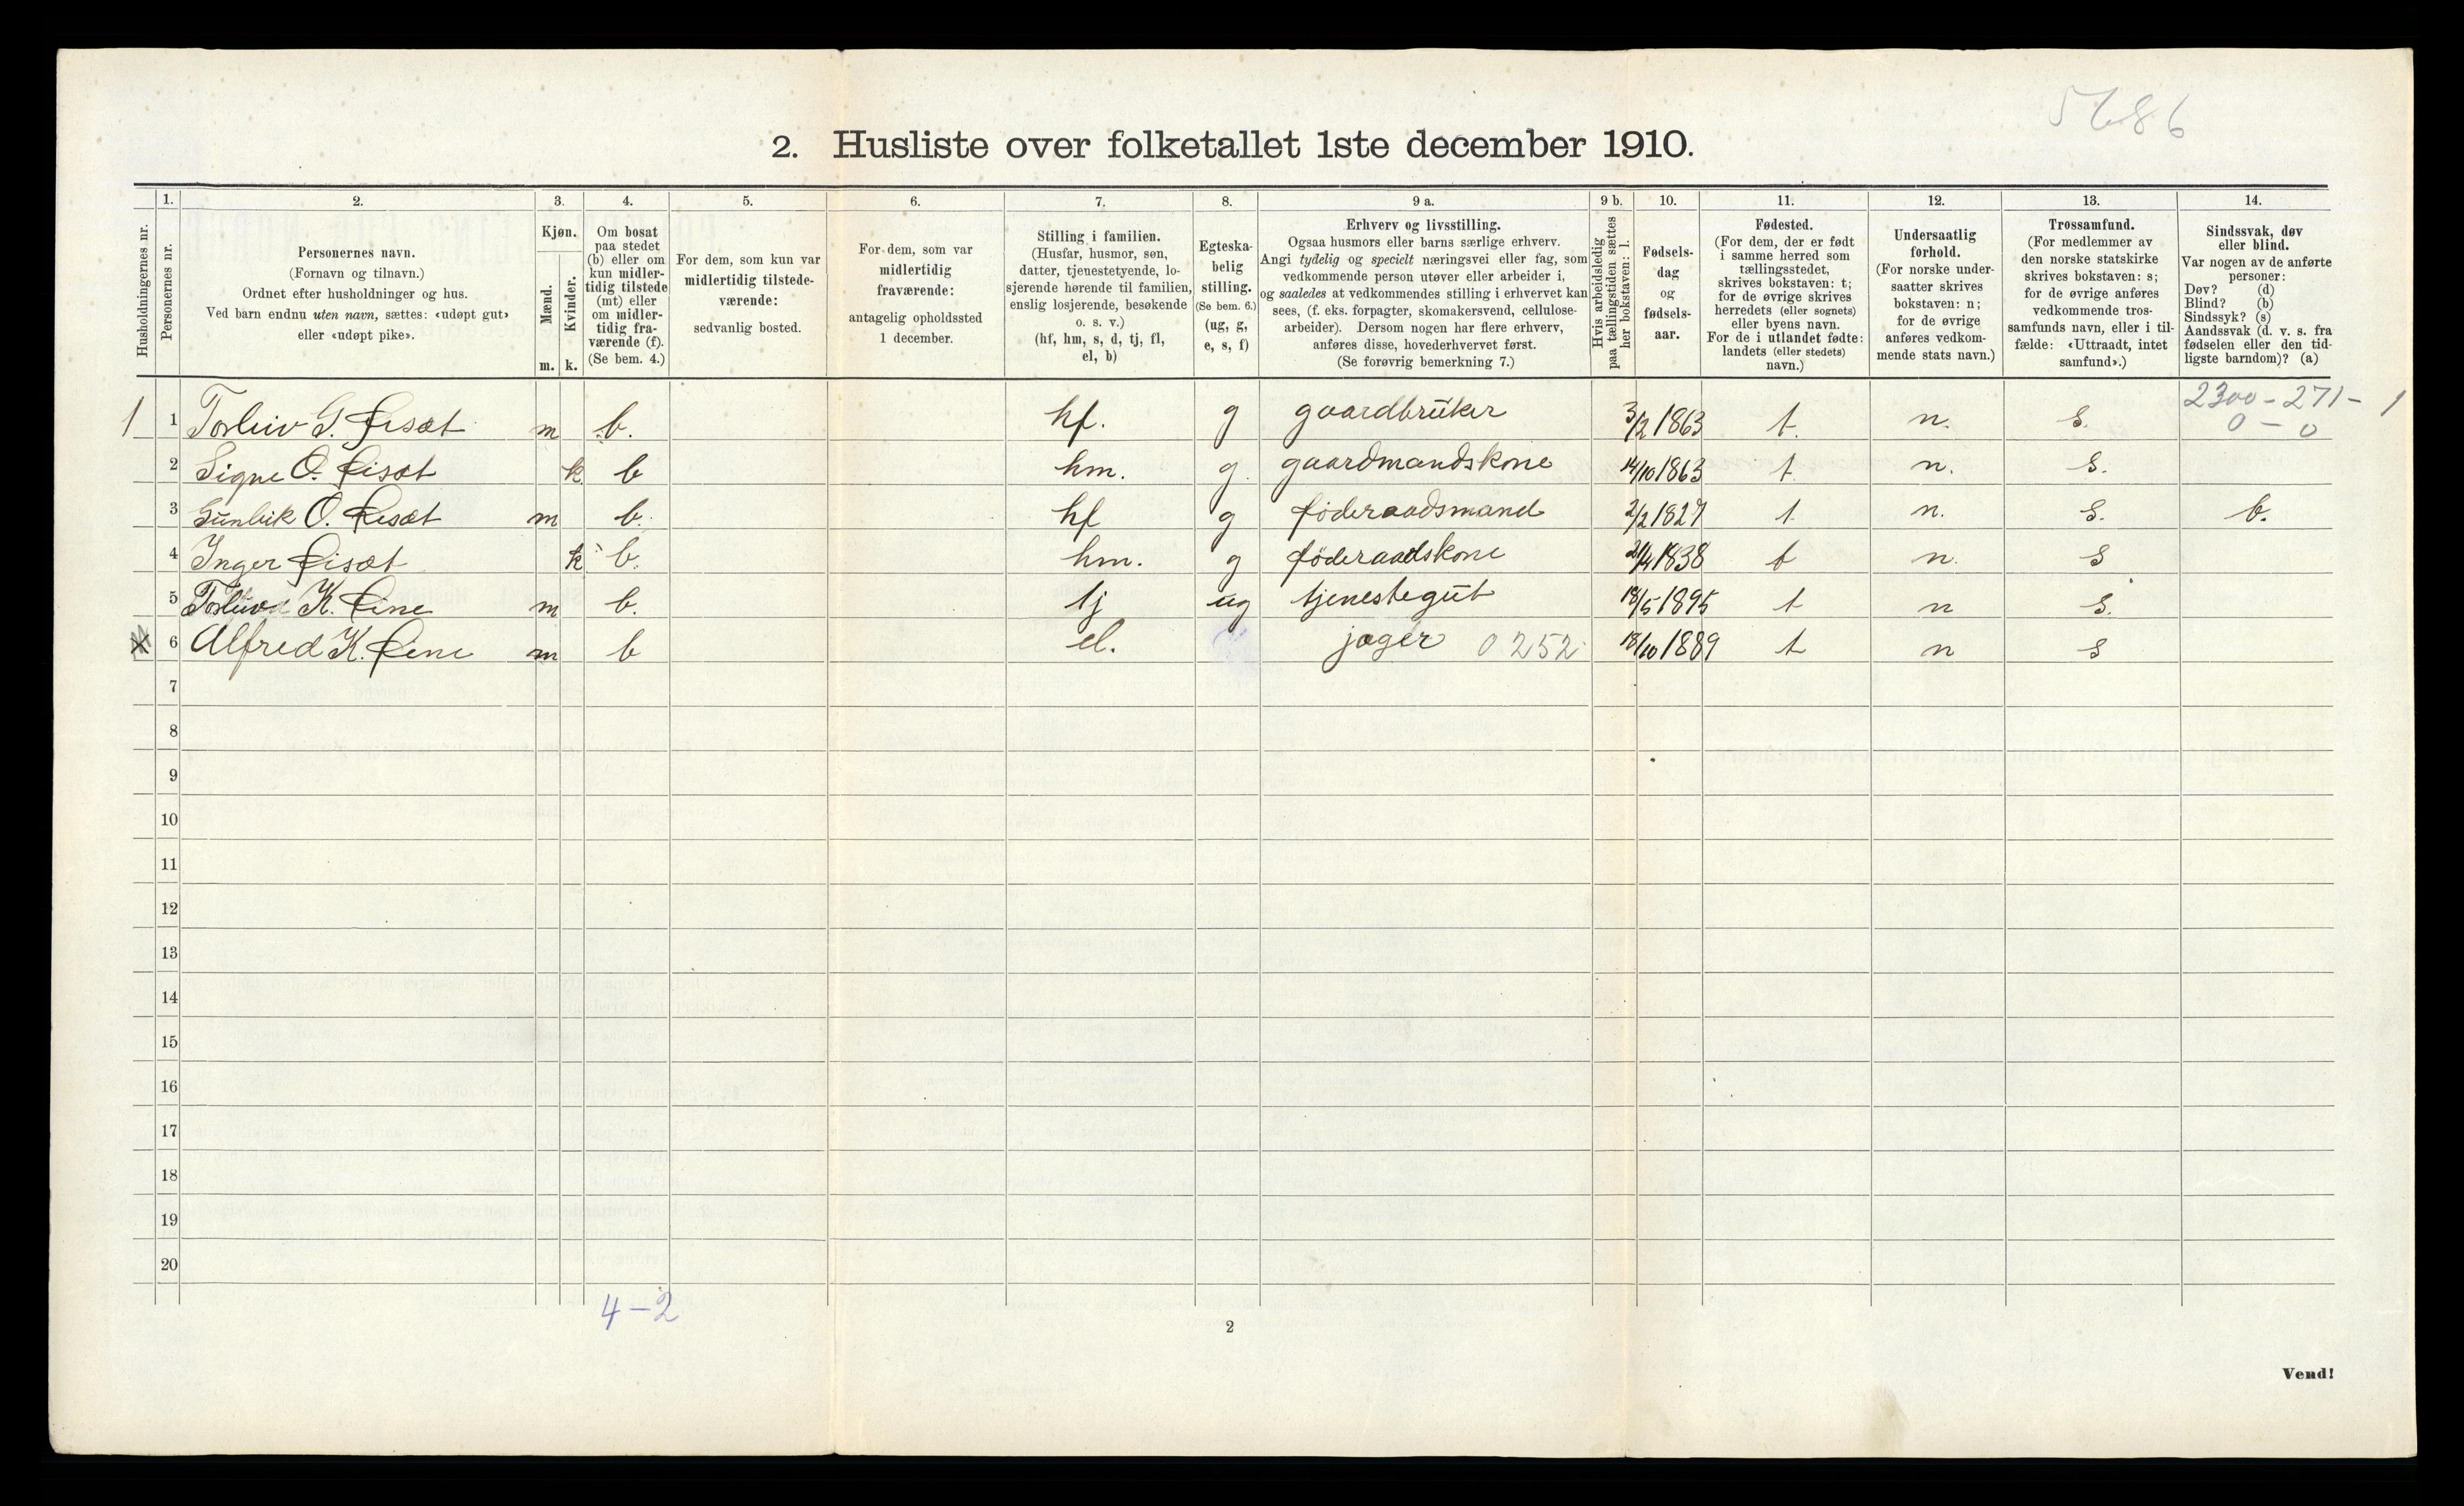 5686
2. Husliste over folketallet 1ste december 1910.
Husholdningernes nr.
1.
Personernes nr.
2.
Personernes navn.
(Fornavn og tilnavn.)
Ordnet efter husholdninger og hus.
Ved barn endnu uten navn, sættes: «udøpt gut»
eller «udøpt pike».
3.
Kjøn.
Mænd.
Kvinder.
m. k.
4.
Om bosat
paa stedet
(b) eller om
kun midler-
tidig tilstede
(mt) eller
om midler-
tidig fra-
værende (f).
(Se bem. 4.)
5.
For dem, som kun var
midlertidig tilstede-
værende:
sedvanlig bosted.
6.
For dem, som var
midlertidig
fraværende:
antagelig opholdssted
1 december.
7.
Stilling i familien.
(Husfar, husmor, søn,
datter, tjenestetyende, lo-
sjerende hørende til familien,
enslig losjerende, besøkende
o. s. v.)
(hf, hm, s, d, tj, fl,
el, b)
8.
Egteska-
belig
stilling.
(Se bem. 6.)
(ug, g,
e, s, f)
9 a.
Erhverv og livsstilling.
Ogsaa husmors eller barns særlige erhverv.
Angi tydelig og specielt næringsvei eller fag, som
vedkommende person utøver eller arbeider i,
og saaledes at vedkommendes stilling i erhvervet kan
sees, (f. eks. forpagter, skomakersvend, cellulose-
arbeider). Dersom nogen har flere erhverv,
anføres disse, hovederhvervet først.
(Se forøvrig bemerkning 7.)
9 b.
Hvis arbeidsledig
paa tællingstiden sættes
her bokstaven: l.
10.
Fødsels-
dag
og
fødsels-
aar.
11.
Fødested.
(For dem, der er født
i samme herred som
tællingsstedet,
skrives bokstaven: t;
for de øvrige skrives
herredets (eller sognets)
eller byens navn.
For de i utlandet fødte:
landets (eller stedets)
navn.)
12.
Undersaatlig
forhold.
(For norske under-
saatter skrives
bokstaven: n;
for de øvrige
anføres vedkom-
mende stats navn.)
13.
Trossamfund.
(For medlemmer av
den norske statskirke
skrives bokstaven: s;
for de øvrige anføres
vedkommende tros-
samfunds navn, eller i til-
fælde: «Uttraadt, intet
samfund».)
14.
Sindssvak, døv
eller blind.
Var nogen av de anførte
personer:
Døv? (d)
Blind? (b)
Sindssyk? (s)
Aandssvak (d. v. s. fra
fødselen eller den tid-
ligste barndom)? (a)
2300 - 271 - 1
0 - 0
1 1 Torleiv G. Risæt m b. hf. g gaardbruker 3/2 1863 t. n. s.
2 Signe O. Risæt k b hm. g. gaardmandskone 14/10 1863 t n. s.
3 Gunleik O. Risæt m b. hf g føderaadsmand 2/2 1827 t n. s. b.
4 Inger Risæt k b. hm. g føderaadskone 2/4 1838 t n. s
5 Torleiv K. Rine m b. tj ug tjenestegut 18/5 1895 t n s.
6 Alfred K. Rine m b el. jæger 0252 18/10 1889 t n s
7
8
9
10
11
12
13
14
15
16
17
18
19
20
4-2
2
Vend!